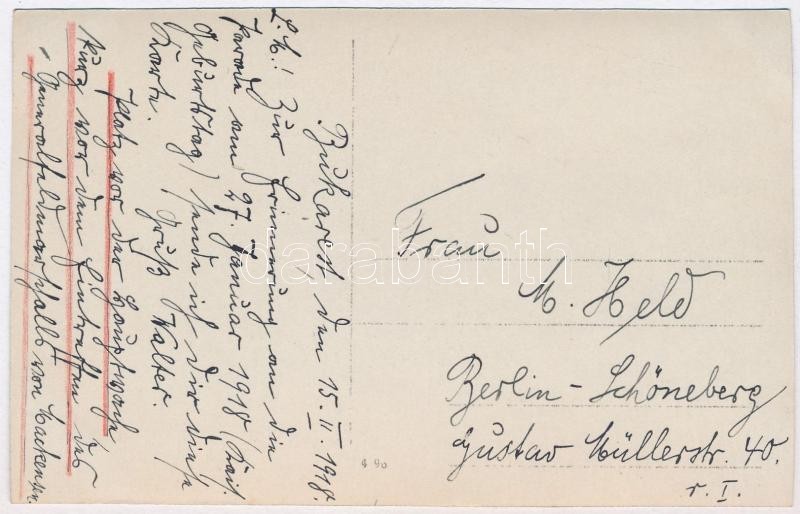 Bukarest, den 15. II. 1918.
L. M.! Zur Erinnerung an die
Parade am 27. Januar 1918 (Kais.
Geburtstag) sende ich Dir diese
Karte. Gruß Walter.
Platz vor der Hauptwache
kurz vor dem Eintreffen des
Generalfeldmarschalls von Mackensen.
Frau
M. Held
Berlin-Schöneberg
Gustav Müllerstr. 40.
r. I.
darabanth